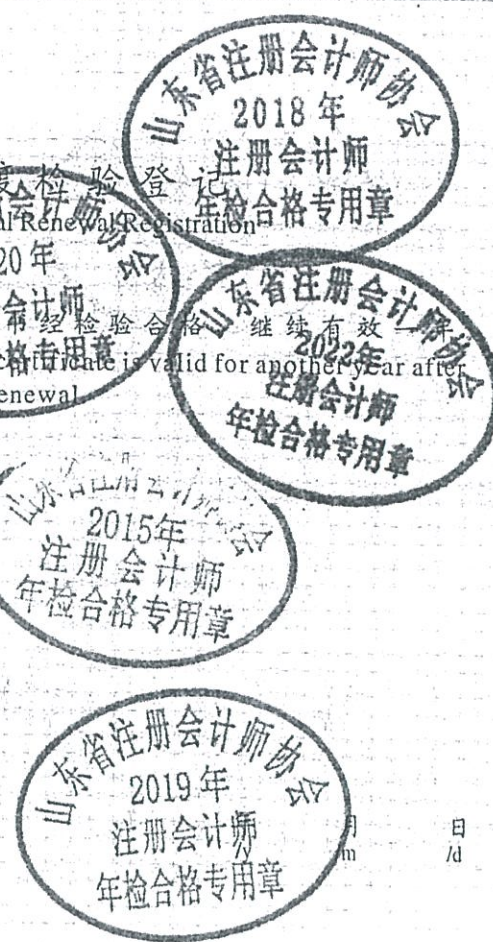 山东省注册会计师协会
2018 年
注册会计师
年检合格专用章
度 检 验 登 记
al Renewal Registration
会计师协会
20 年
会计师
格专用章
经 检 验 合 格 继 续 有 效 一
certificate is valid for another year after
enewal
山东省注册会计师协会
2022年
注册会计师
年检合格专用章
2015年
注册会计师
年检合格专用章
山东省注册会计师协会
2019 年
注册会计师
年检合格专用章
月 日
/m /d